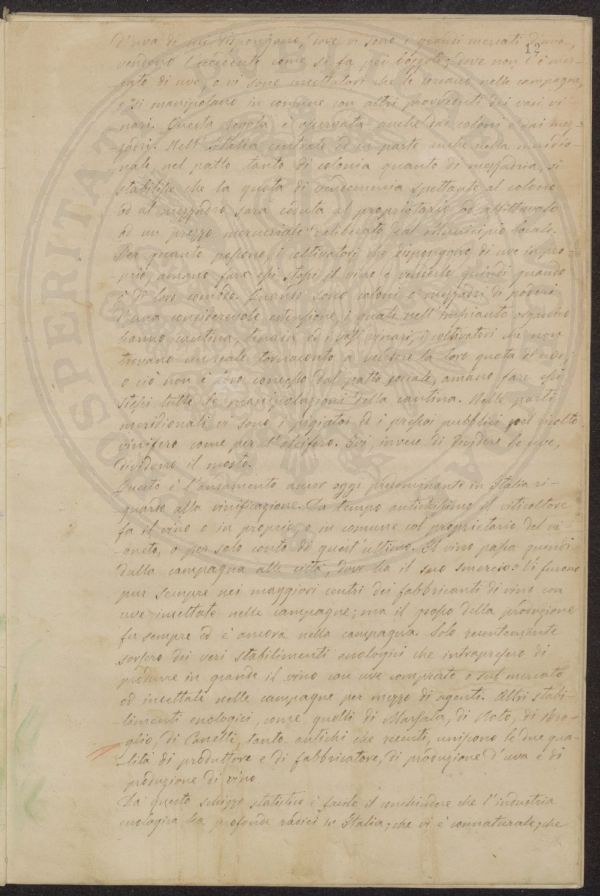 12
D'uva di cui dispongono, dove vi sono i grandi mercati d'uva,
vendono l'eccedente come si fa pei bozzoli; dove non c'è mer-
cato di uva, o vi sono incettatori che le comprano nelle campagne,
o si manipolano in comune con altre provenienti dei vari vi-
nari. Questa regola è osservata anche dai coloni e dai mez-
zadri. Nell'Italia centrale ed in parte anche nella meridio-
nale, nel patto tanto di colonia quanto di mezzadria, si
stabilisce che la quota di vendemmia spettante al colono
od al mezzadro sarà ceduta al proprietario od affittavolo
ad un prezzo mercuriale deliberato dal Municipio locale.
Per quanto possono, i coltivatori che dispongono di uve in pro-
prio amano fare essi stessi il vino e venderlo quindi quando
è di loro comodo. Quando sono coloni o mezzadri di poderi
d'una considerevole estensione, i quali nell'impianto
hanno cantina, tinaia ed i vasi vinari, i coltivatori che non
trovano un reale tornaconto a vendere la loro quota di uve,
o ciò non è loro concesso dal patto, amano fare essi
stessi tutte le manipolazioni della cantina. Nelle parti
meridionali vi sono i pigiatoi ed i pressoi pubblici pel
vinifero come per l'oleifero. Ivi, invece di dividere le uve,
dividono il mosto.
Questo è l'ansamento ancor oggi predominante in Italia ri-
guardo alla vinificazione. Da tempo antichissimo il viticoltore
fa il vino o in proprio, o in comune col proprietario del vi-
gneto, o per solo conto di quest'ultimo. Il vino passa quindi
dalla campagna alle città, dove ha il suo smercio. Vi furono
pur sempre nei maggiori centri dei fabbricanti di vino con
uve incettate nelle campagne; ma il grosso della produzione
fu sempre ed è ancora nella campagna. Solo recentemente
sorsero dei veri stabilimenti enologici che intrapresero di
produrre in grande il vino con uve comprate o sul mercato
od incettate nelle campagne per mezzo di agenti. Altri stabi-
limenti enologici, come quelli di Marsala, di Noto, di Bro-
glio, di Canelli, tanto antichi che recenti, uniscono le due qua-
lità di produttore e di fabbricatore, di produzione d'uva e di
produzione di vino.
Da questo schizzo statistico è facile il conchiudere che l'industria
enologica ha profonde radici in Italia; che vi è connaturale; che